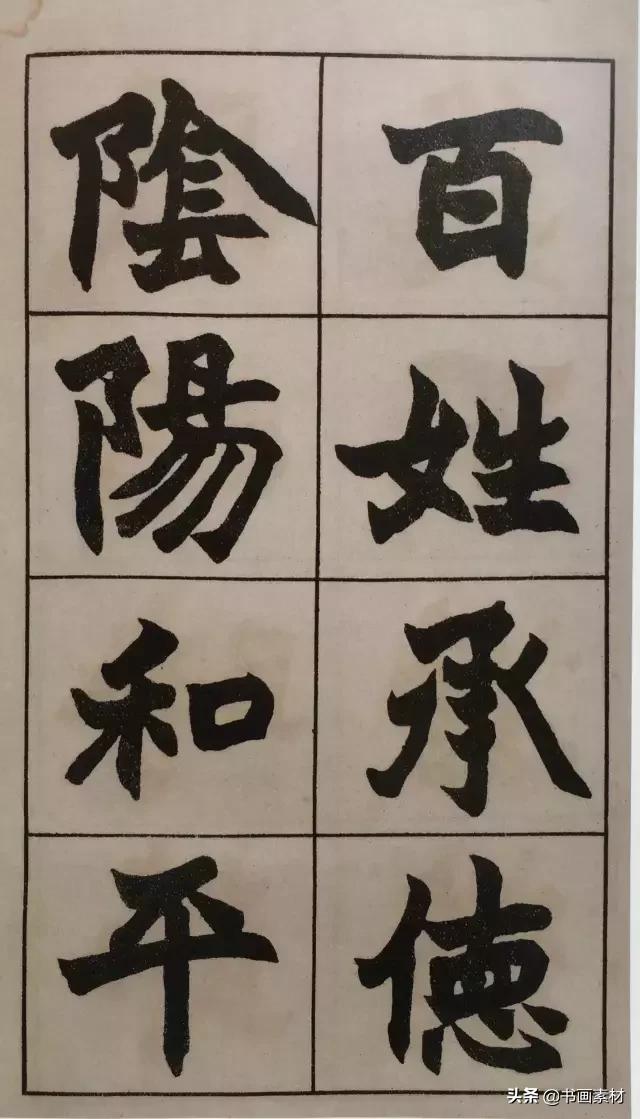 百姓承德
陰陽和平
头条@书画素材